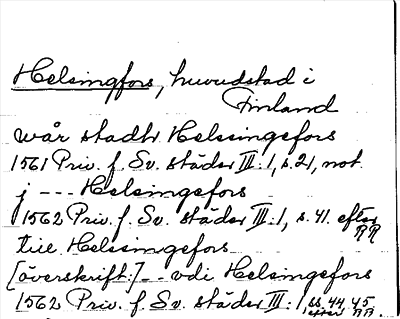 Helsingfors, huvudstad i
Finland
wår stadh Helssingefors
1561 Priv. f. Sv. städer III:1, s. 21, not
j --- Helsingefors
1562 Priv. f. Sv. städer III:1, s. 41. efter RR
till Helssingefors
[överskrift:] -- vdi Helsingefors
1562 Priv. f. Sv. städer III:1 ss. 44, 45,
efter RR.